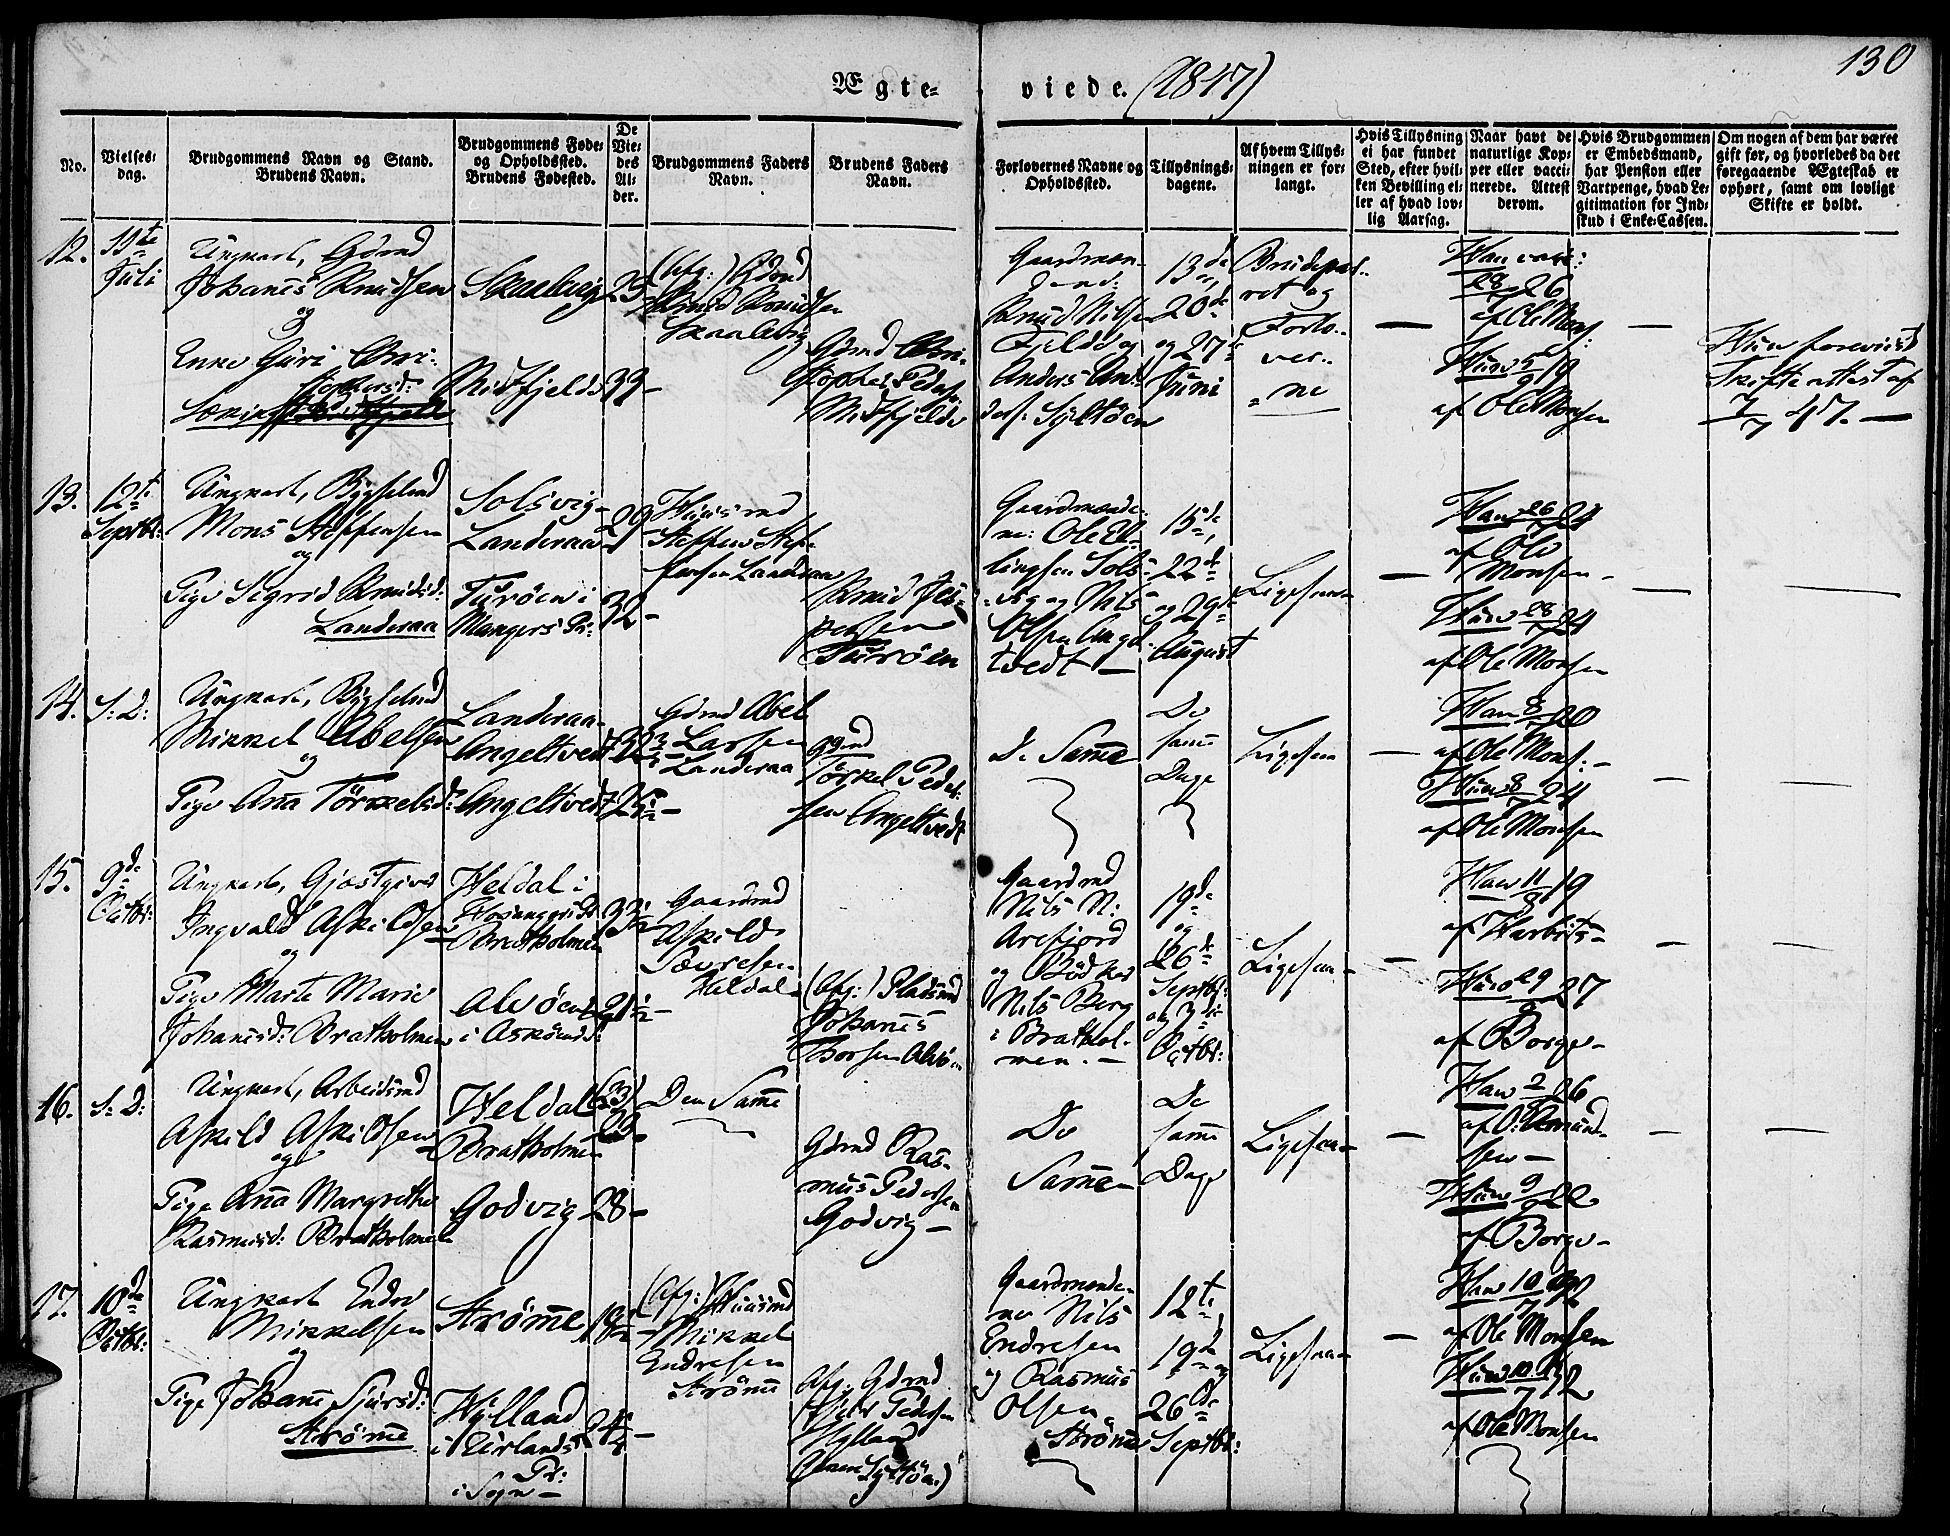 130
Ægte- viede. (1847)
No.
Vielses-
dag.
Brudgommens Navn og Stand.
Brudens Navn.
Brudgommens Føde-
og Opholdssted.
Brudens Fødested.
De
Vie-
des
Al-
der.
Brudgommens Faders
Navn.
Brudens Faders
Navn.
Forlovernes Navne og
Opholdssted.
Tillysnings-
dagene.
Af hvem Tillys-
ningen er for-
langt.
Hvis Tillysning
ei har fundet
Sted, efter hvil-
ken Bevilling el-
ler af hvad lov-
lig Aarsag.
Naar havt de
naturlige Kop-
per eller vacci-
nerede. Attest
derom.
Hvis Brudgommen
er Embedsmand,
har Pension eller
Vartpenge, hvad Le-
gitimation for Ind-
skud i Enke-Cassen.
Om nogen af dem har været
gift før, og hvorledes da det
foregaaende Ægteskab er
ophørt, samt om lovligt
Skifte er holdt.
12.
11te
Juli
Ungkarl, Gdmd
Johanes Knudsen
og
Enke Guri Chri-
stophersd:
Skaalevig
Midtfjeld
39-
(Afg:) Gdmd
Knud Knudsen
Skaalevig
Gdmd Chri-
stopher Peders:
Midtfjeld
Gaardmæn-
dene:
Knud Nilsen
Fjeld og
Anders An-
ders: Syltøen
13de,
20de
og 27de
Juni
Brudepar-
ret og
Forlo-
ver-
ne
Han vacc:
26
af Ole Mons:
Hun 19
af Ole Monsen
Hun foreviist
Skifteattest af
7/7 47. —
13.
12te
Septbr:
Ungkarl, Bygselmd
Mons Steffensen
og
Pige Sigrid Knudsd:
Landeraa
Solsvig-
Landeraa
Turøen i
Mangers Pr:
29
32-
Huusmd
Steffen Stef-
fensen Landeraa
Knud Jes-
persen
Turøen
Gaardmænde-
ne: Ole El-
lingsen Sols-
vig og Nils
Olsen Angel-
tvedt —
15de,
22de
og 29de
August
Ligesaa-
Han 26/ 24
af Ole
Monsen-
Hun 28/ 24
af Ole Monsen
14.
S: D:
Ungkarl, Bygselmd
Mikkel Abelsen
og
Pige Ana Törkelsd:
Landeraa-
Angeltvedt
Angeltvedt
Gdmd Abel
Larsen
Landeraa
Gdmd
Törkel Peder-
sen Angeltvedt
De Same
De
same
Dage
Ligesaa
Han 8/ 20
af Ole Mons:-
Hun 8/7 24
af Ole Monsen
15.
9de
Octbr:
Ungkarl, Gjæstgiver
Ingvald Askildsen
og
Pige Marte Marie
Johanesd: Bratholmen
Heldal i
Bratholmen
Alvöen
i Askönds
Gaardmd
Askild
Sævresen
Heldal
(Afg:) Pladsmd
Johanes
Thorsen Alvö-
Gaardmd
Nils N:
Arefjord
og Bödker
Nils Berg
i Brathol-
men.-
19de
og
26de
Septbr:
og 3de
Octbr:
Ligesaa-
Han 11/ 19
af Harbits-
Hun 29/ 27
af Borge-
16.
S: D:
Ungkarl, Arbeidsmd
Askild Askildsen
og
Pige Ana Margrethe
Rasmusd: Bratholmen
Heldal
Bratholmen
Godvig
28-
Den Same
Gdmd Ras-
mus Pedersen
Godvig —
De
Same
De
same
Dage
Ligesaa-
Han 2/ 26
af O: Amund-
sen —
Hun 9/ 22
af Borge-
17.
10de
Octbr:
Ungkarl Endre
Mikkelsen
og
Pige Johane Sjursd:
Ströme
Ströme
Hylland
i Urlands
Pr:
i Sogn —
(Afg:) Huusmd
Mikkel
Endresen
Ströme
Afg. Gdmd
Sjur Pedersen
Hylland
Gaardmænde-
ne Nils
Endresen
og Rasmus
Olsen
Ströme
12te,
19de og
26de
Septbr:
Ligesaa-
Han 10/7
af Ole Monsen
Hun 10/7
af Ole Monsen